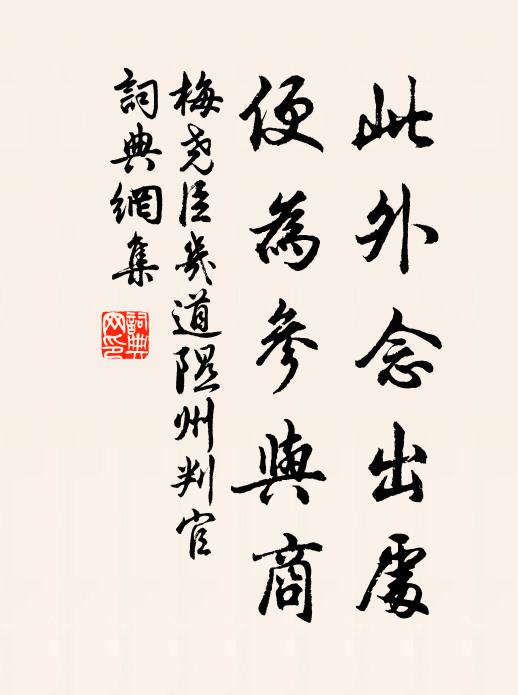 此外念出處
便為參與商
梅堯臣幾道隰州判官
詞典網集
詞典網印